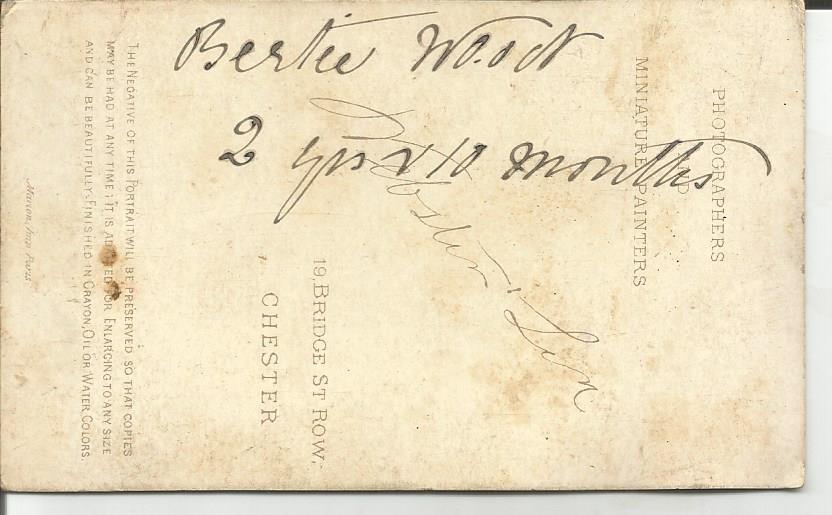 Bertie Wood
2 yrs & 10 months
PHOTOGRAPHERS
AND
MINIATURE PAINTERS
& Son
19, BRIDGE ST ROW.
CHESTER
THE NEGATIVE OF THIS PORTRAIT WILL BE PRESERVED SO THAT COPIES
MAY BE HAD AT ANY TIME; IT IS ADAPTED FOR ENLARGING TO ANY SIZE
AND CAN BE BEAUTIFULLY FINISHED IN CRAYON, OIL OR WATER COLORS.
Marion, Imp. Paris